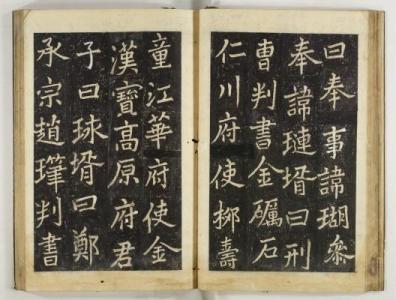 曰奉事諱瑚參
奉諱璉壻曰刑
曹判書金礪石
仁川府使柳壽
童江華府使金
漢寶高原府君
子曰球壻曰鄭
承宗趙判書